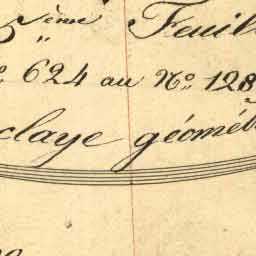 5ème Feuil
624 au No 128
claye géomét